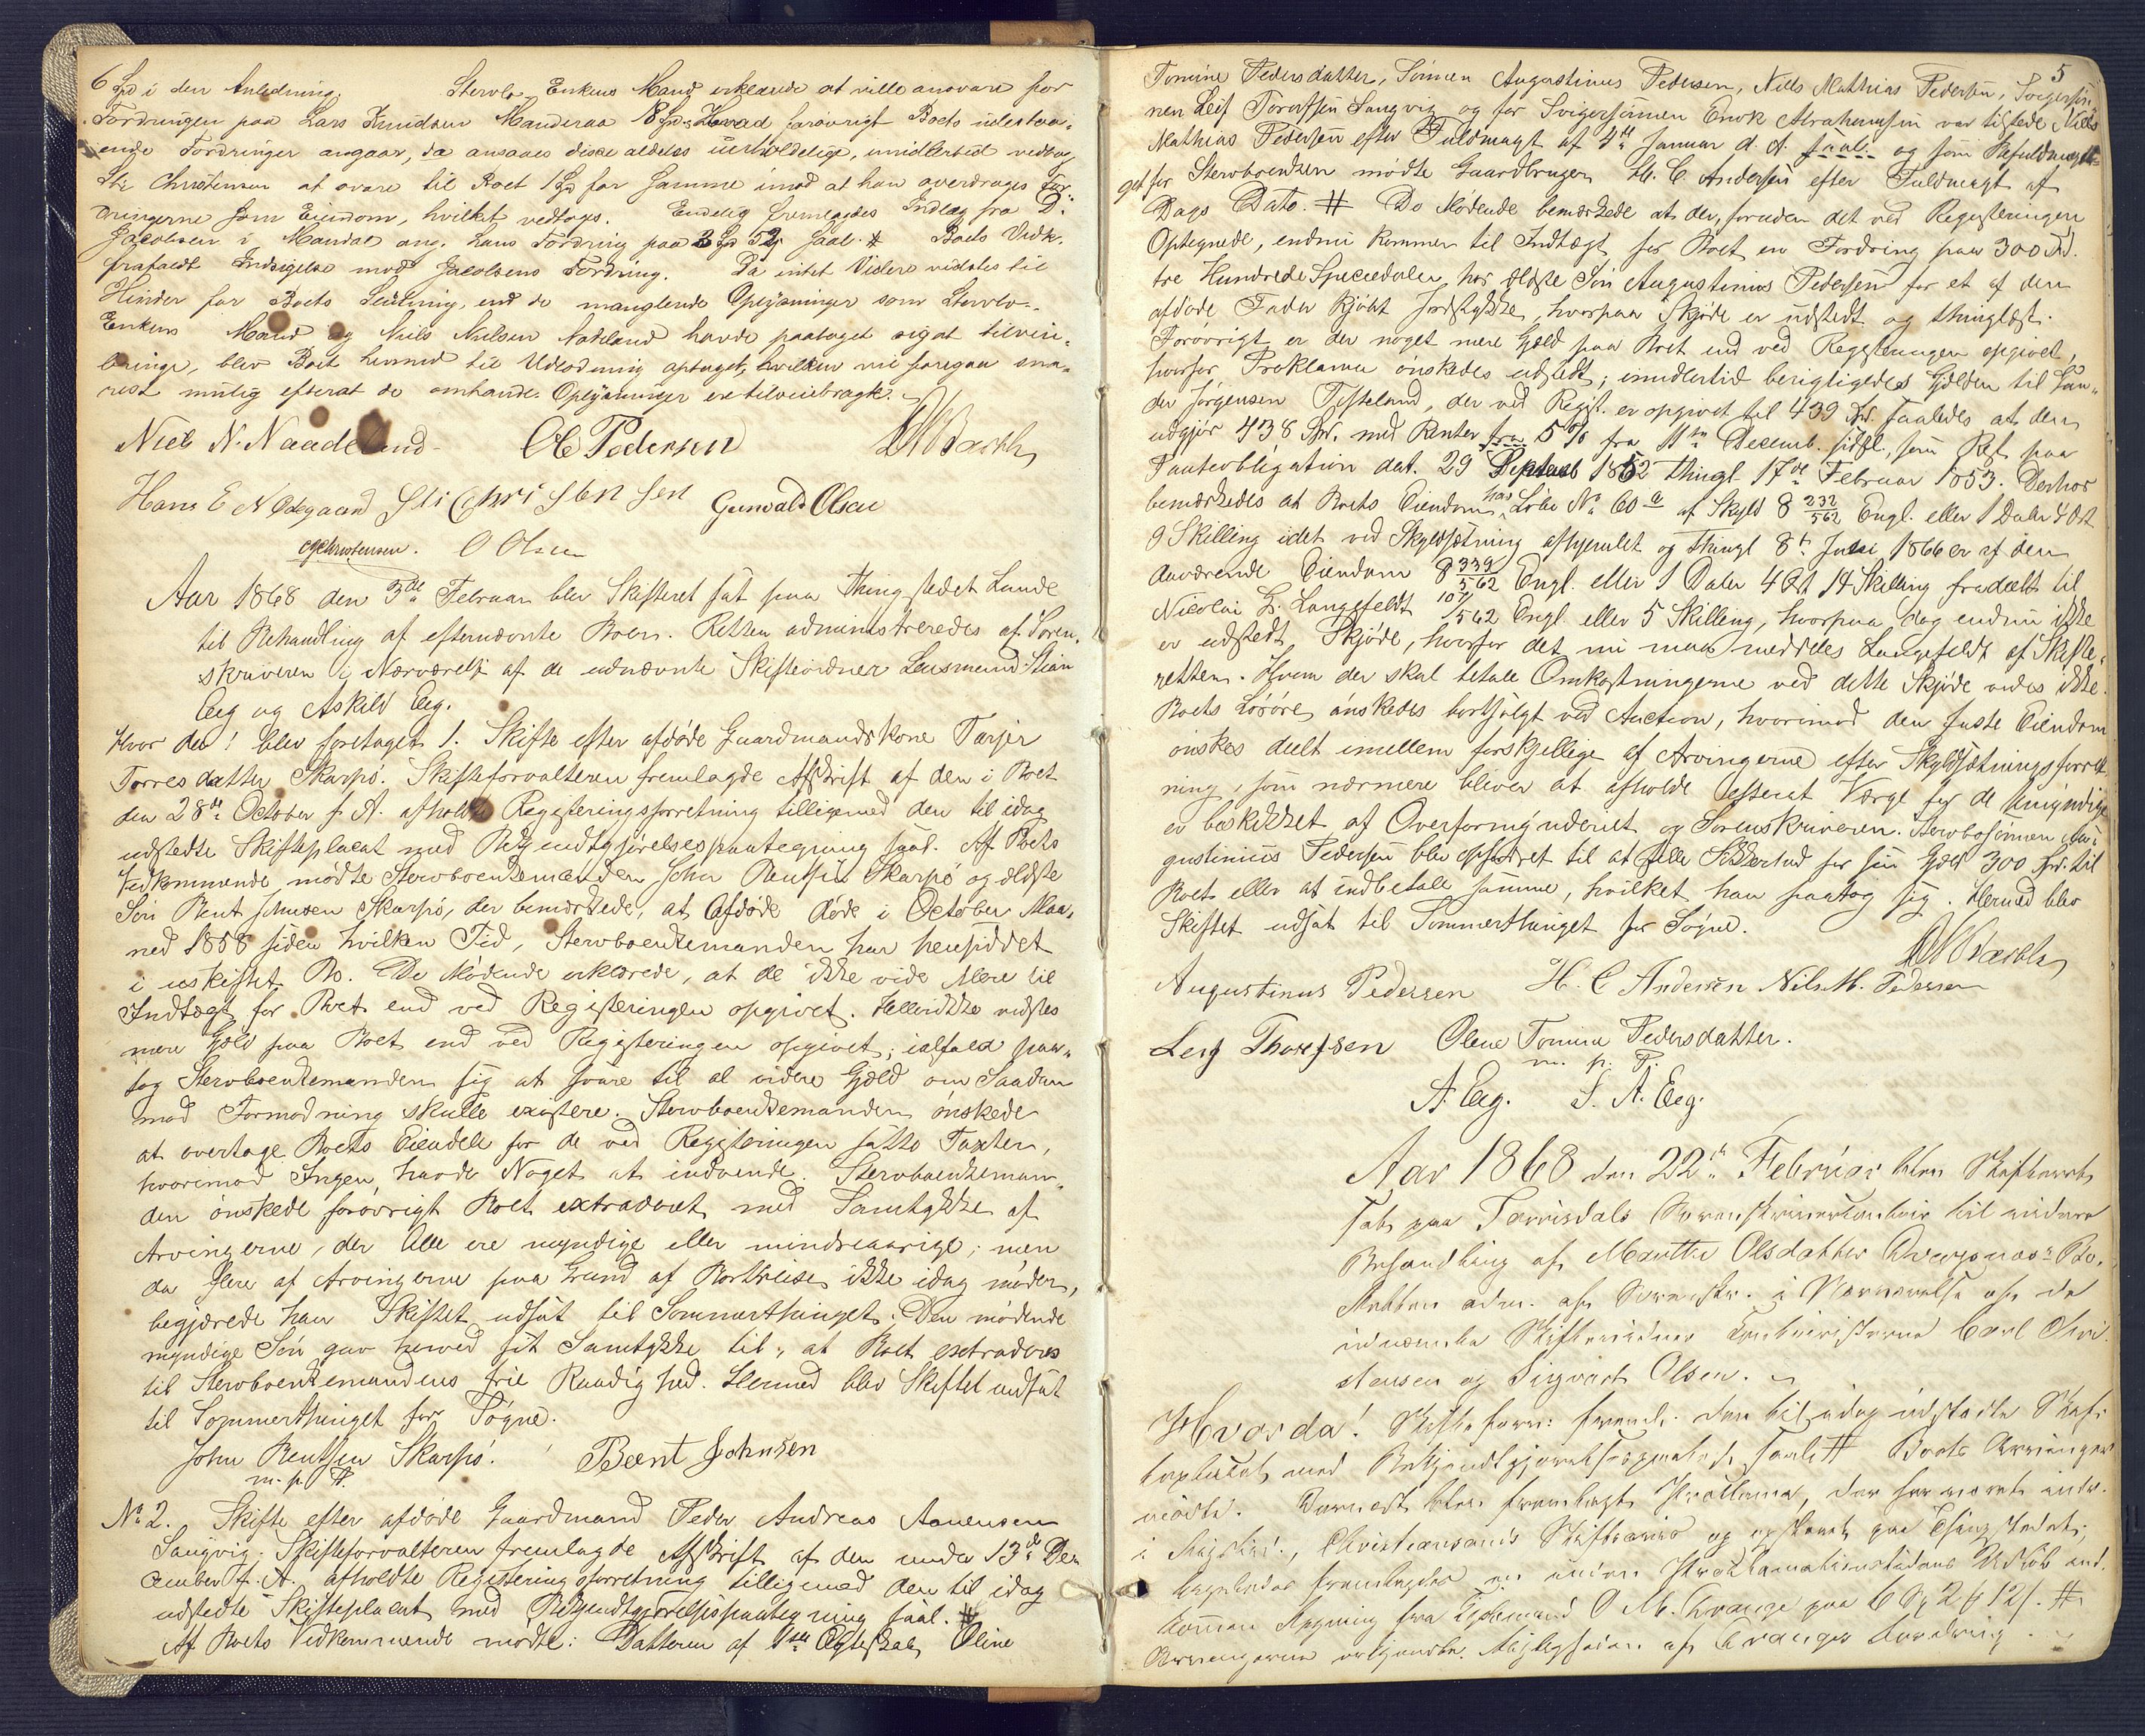 6 Spd i den Anledning. Stervb. Enkens Mand erklærede at ville ansvare for
Fordringen paa Lars Knudsen Manderaa 18 Spd. Hvad forøvrigt Boets udestaa-
ende Fordringer angaar, da ansaaes disse aldeles uerholdelige, imidlertid vedtog
Sti Christensen at svare til Boet 1 Spd for samme imod at han overdroges For-
dringerne som Eiendom, hvilket vedtoges. Endelig fremlagdes Indlæg fra D.
Jacobsen i Mandal ang. hans Fordring paa saal. # Boets Vedk.
frafaldt Indsigelse mod Jacobsens Fordring. Da intet Videre vidstes til
Hinder for Boets Slutning, end de manglende Oplysninger som Stervbo-
Enkens Mand og Niels Nielsen Nodeland havde paataget sig at tilveie-
bringe, blev Boet hermed til Udlodning optaget, hvilken vil foregaa sna-
rest mulig efterat de omhandl. Oplysninger ere tilveiebragte.
Niels N. Naadeland Ole Pedersen
Hans E Nødegaard Sti Christensen Gunvald Olsen
Christensen. O Olsen
Aar 1868 den 3de Februar blev Skifteret sat paa Thingstedet Lunde
til Behandling af efternævnte Boer. Retten administreredes af Soren-
skriveren i Nærværelse af de udnævnte Skiftevidner Lensmand Stian
Eeg og Askild Eeg.
Hvor da! blev foretaget 1. Skifte efter afdøde Gaardmandskone Tarjer
Torresdatter Skarpø. Skifteforvalteren fremlagde Afskrift af den i Boet
den 28de October f. A. afholdte Registeringsforretning tilligemed den til idag
udstedte Skifteplacat med Bekjendtgjørelsespaategning saal. Af Boets
Vedkommende mødte Stervboenkemanden John Bentsen Skarpø og ældste
Søn Bent Johnsen Skarpø, der bemærkede, at Afdøde døde i October Maa-
ned 1858 siden hvilken Tid, Stervboenkemanden har hensiddet
i uskiftet Bo. De Mødende erklærede, at de ikke vide Mere til
Indtægt for Boet end ved Registeringen opgivet. Hellerikke vidstes
mere Gjæld paa Boet end ved Registeringen opgivet; ialfald paa-
tog Stervboenkemanden sig at svare til al videre Gjæld om Saadan
mod Formodning skulle existere. Stervboenkemanden ønskede
at overtage Boets Eiendele for de ved Registeringen satte Taxter,
hvorimod Ingen havde Noget at indvende. Stervboenkeman-
den ønskede forøvrigt Boet extraderet med Samtykke af
Arvingerne, der Alle ere myndige eller mindreaarige; men
da flere af Arvingerne paa Grund af Bortreise ikke idag møder,
begjærede han Skiftet udsat til Sommerthinget. Den mødende
myndige Søn gav herved sit Samtykke til, at Boet extraderes
til Stervboenkemandens frie Raadighed. Hermed blev Skiftet udsat
til Sommerthinget for Søgne.
John Bentsen Skarpø. Bent Johnsen
m. p. P.
No 2. Skifte efter afdøde Gaardmand Peder Andreas Aanensen
Langvig. Skifteforvalteren fremlagde Afskrift af den under 13de De-
cember f. A. afholdte Registeringsforretning tilligemed den til idag
udstedte Skifteplacat med Bekjendtgjørelsespaategning saal. #
Af Boets Vedkommende mødte: Datteren af 1ste Ægteskab Oline
5
Tomine Pedersdatter, Sønnen Augustinus Pedersen, Niels Mathias Pedersen, Svigersøn-
nen Leif Torersen Langvig og for Svigersønnen Enok Abrahamsen var tilstede Niels
Mathias Pedersen efter Fuldmagt af 4de Januar d. A. saal. og som Befuldmægti-
get for Stervboenken mødte Gaardbruger H. C. Andersen efter Fuldmagt af
Dags Dato. # De Mødende bemærkede at der, foruden det ved Registeringen
Optegnede, endnu kommer til Indtægt for Boet en Fordring paa 300 Spd.
tre Hundrede Speciedaler hos ældste Søn Augustinus Pedersen for et af den
afdøde Fader kjøbt Jordstykke, hvorpaa Skjøde er udstedt og thinglæst.
Forøvrigt er der noget mere Gjæld paa Boet end ved Registeringen opgivet,
hvorfor Proklama ønskedes udstedt; imidlertid berigtigedes Gjælden til Gun-
der Jørgensen Tisteland, der ved Regist. er opgivet til 439 Spd. saaledes at den
udgjør 438 Spd. med Renter fra 5% fra 11te Decemb. sidstl., som Rest paa
Panteobligation dat. 29 Septemb 1852 thingl. 17de Februar 1853. Derhos
bemærkedes at Boets Eiendom har Løbe No 60 a af Skyld 8 232/562 Engl. eller 1 Daler 4 Ort
9 Skilling idet ved Skyldsætning afhjemlet og thingl. 8de Juni 1866 er af den
daværende Eiendom 8 339/562 Engl. eller 1 Daler 4 Ort 14 Skilling fradeelt til
Nicolai G. Langfeldt 107/562 Engl. eller 5 Skilling, hvorpaa dog endnu ikke
er udstedt Skjøde, hvorfor det nu maa meddeles Langfeldt af Skifte-
retten. Hvem der skal betale Omkostningerne ved dette Skjøde vides ikke.
Boets Løsøre ønskedes bortsolgt ved Auction, hvorimod den faste Eiendom
ønskes deelt imellem forskjellige af Arvingerne efter Skyldsætningsforret-
ning, som nærmere bliver at afholde efterat Værge for de Umyndige
er beskikket af Overformynderiet og Sorenskriveren. Stervbosønnen Au-
gustinus Pedersen blev opfordret til at stille Sikkerhed for sin Gjæld 300 Spd. til
Boet eller at indbetale samme, hvilket han paatog sig. Hermed blev
Skiftet udsat til Sommerthinget for Søgne.
Augustinus Pedersen H. C Andersen Nils M. Pedersen
Leif Thorefsen Olene Tomine Pedersdatter.
m. p. P.
A. Eeg. S. A. Eeg.
Aar 1868 den 22de Februar blev Skifteret
sat paa Torrisdals Sorenskrivercontoir til videre
Behandling af Marthe Olsdatter Dvergsnæs's Bo.
Retten adm. af Sorenskr. i Nærværelse af de
udnævnte Skiftevidner Contoiristerne Carl Chri-
stensen og Sigvart Olsen.
Hvor da! Skifteforv. freml. den til idag udstedte Skif-
teplacat med Bekjendtgjørelsespaategn. saal. # Boets Arvinger
mødte. Dernæst blev fremlagt Proclama, der har været indr.
i Rigstid., Christianssands Stiftsavis og opslaaet paa Thingstedet;
ligeledes fremlagdes en inden Proclamationstidens Udløb ind-
kommen Regning fra O. M. paa 6 Spd 2 ort 12 s. #
Arvingerne erkjendte Rigtigheden af Fordring.